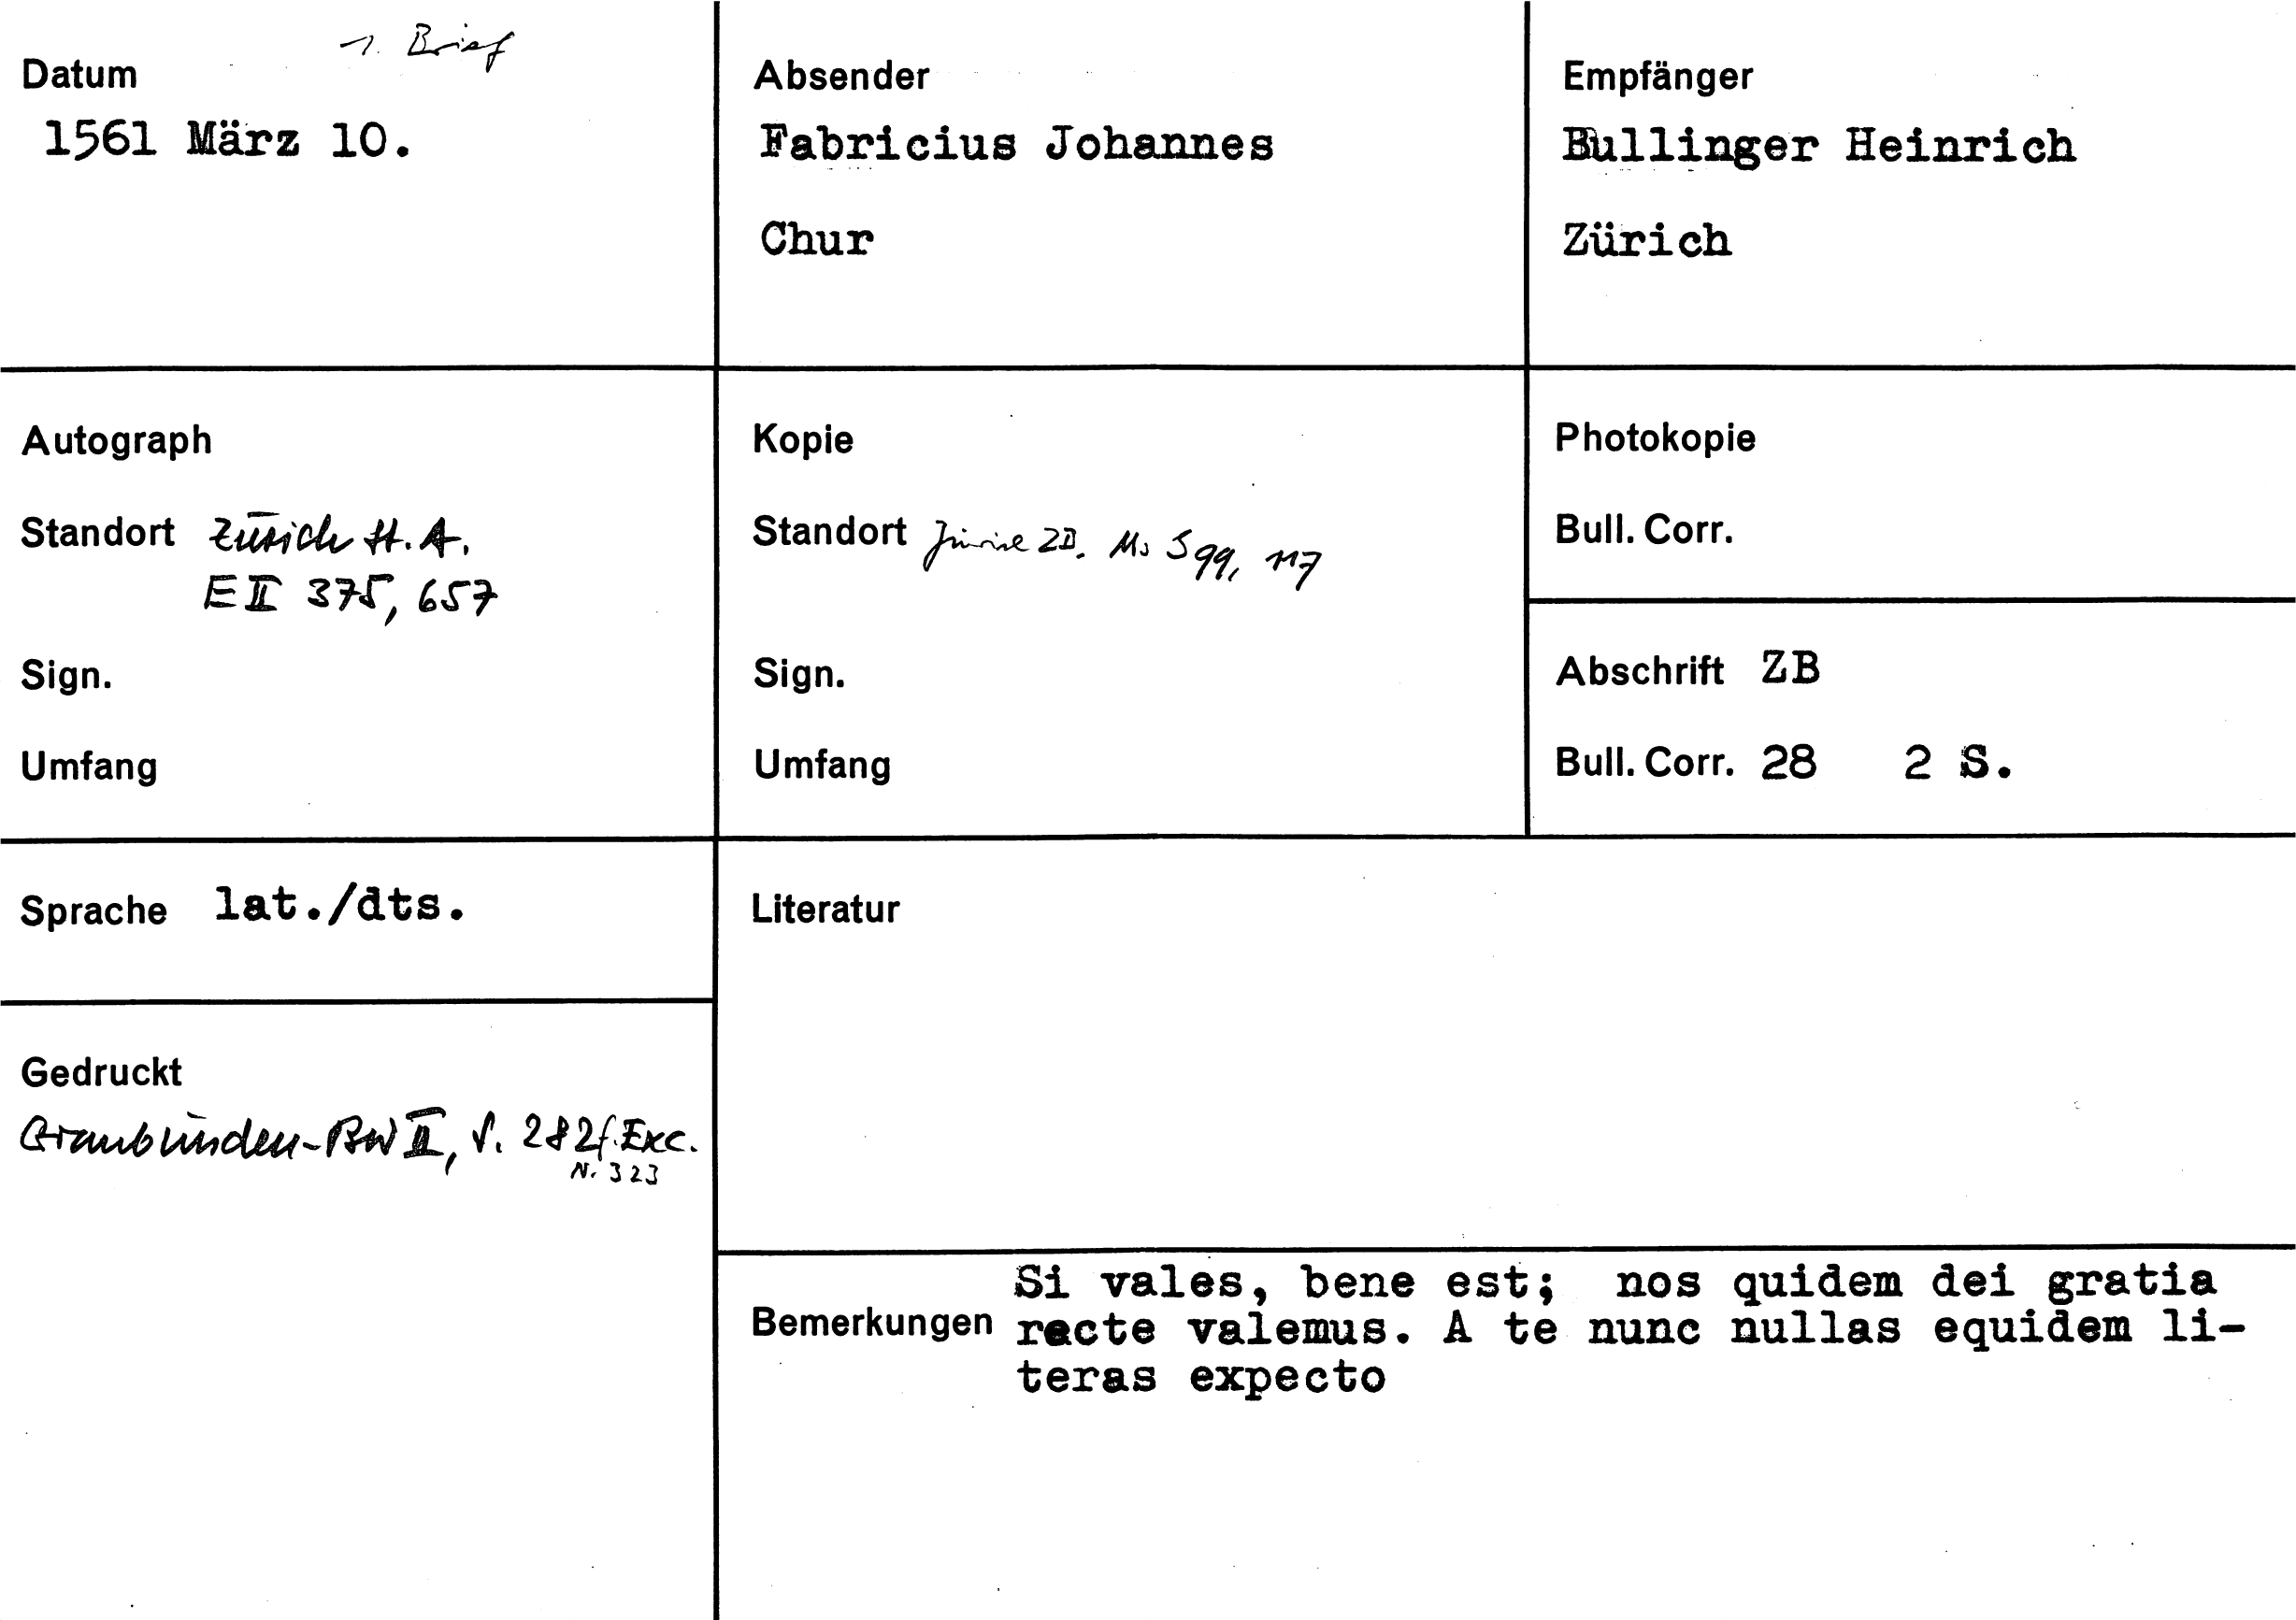 1. Brief
Datum
1561 März 10.
Absender
Fabricius Johannes
Chur
Empfänger
Bullinger Heinrich
Zürich
Autograph
Standort Zürich St. A.
E II 375, 657
Sign.
Umfang
Kopie
Standort Zürich ZB. Ms S 99, 117
Sign.
Umfang
Photokopie
Bull. Corr.
Abschrift ZB
Bull. Corr. 28 2 S.
Sprache lat./dts.
Literatur
Gedruckt
Graubünden-BW II, S. 282f. Exc.
N. 323
Bemerkungen
Si vales, bene est; nos quidem dei gratia
recte valemus. A te nunc nullas equidem li-
teras expecto